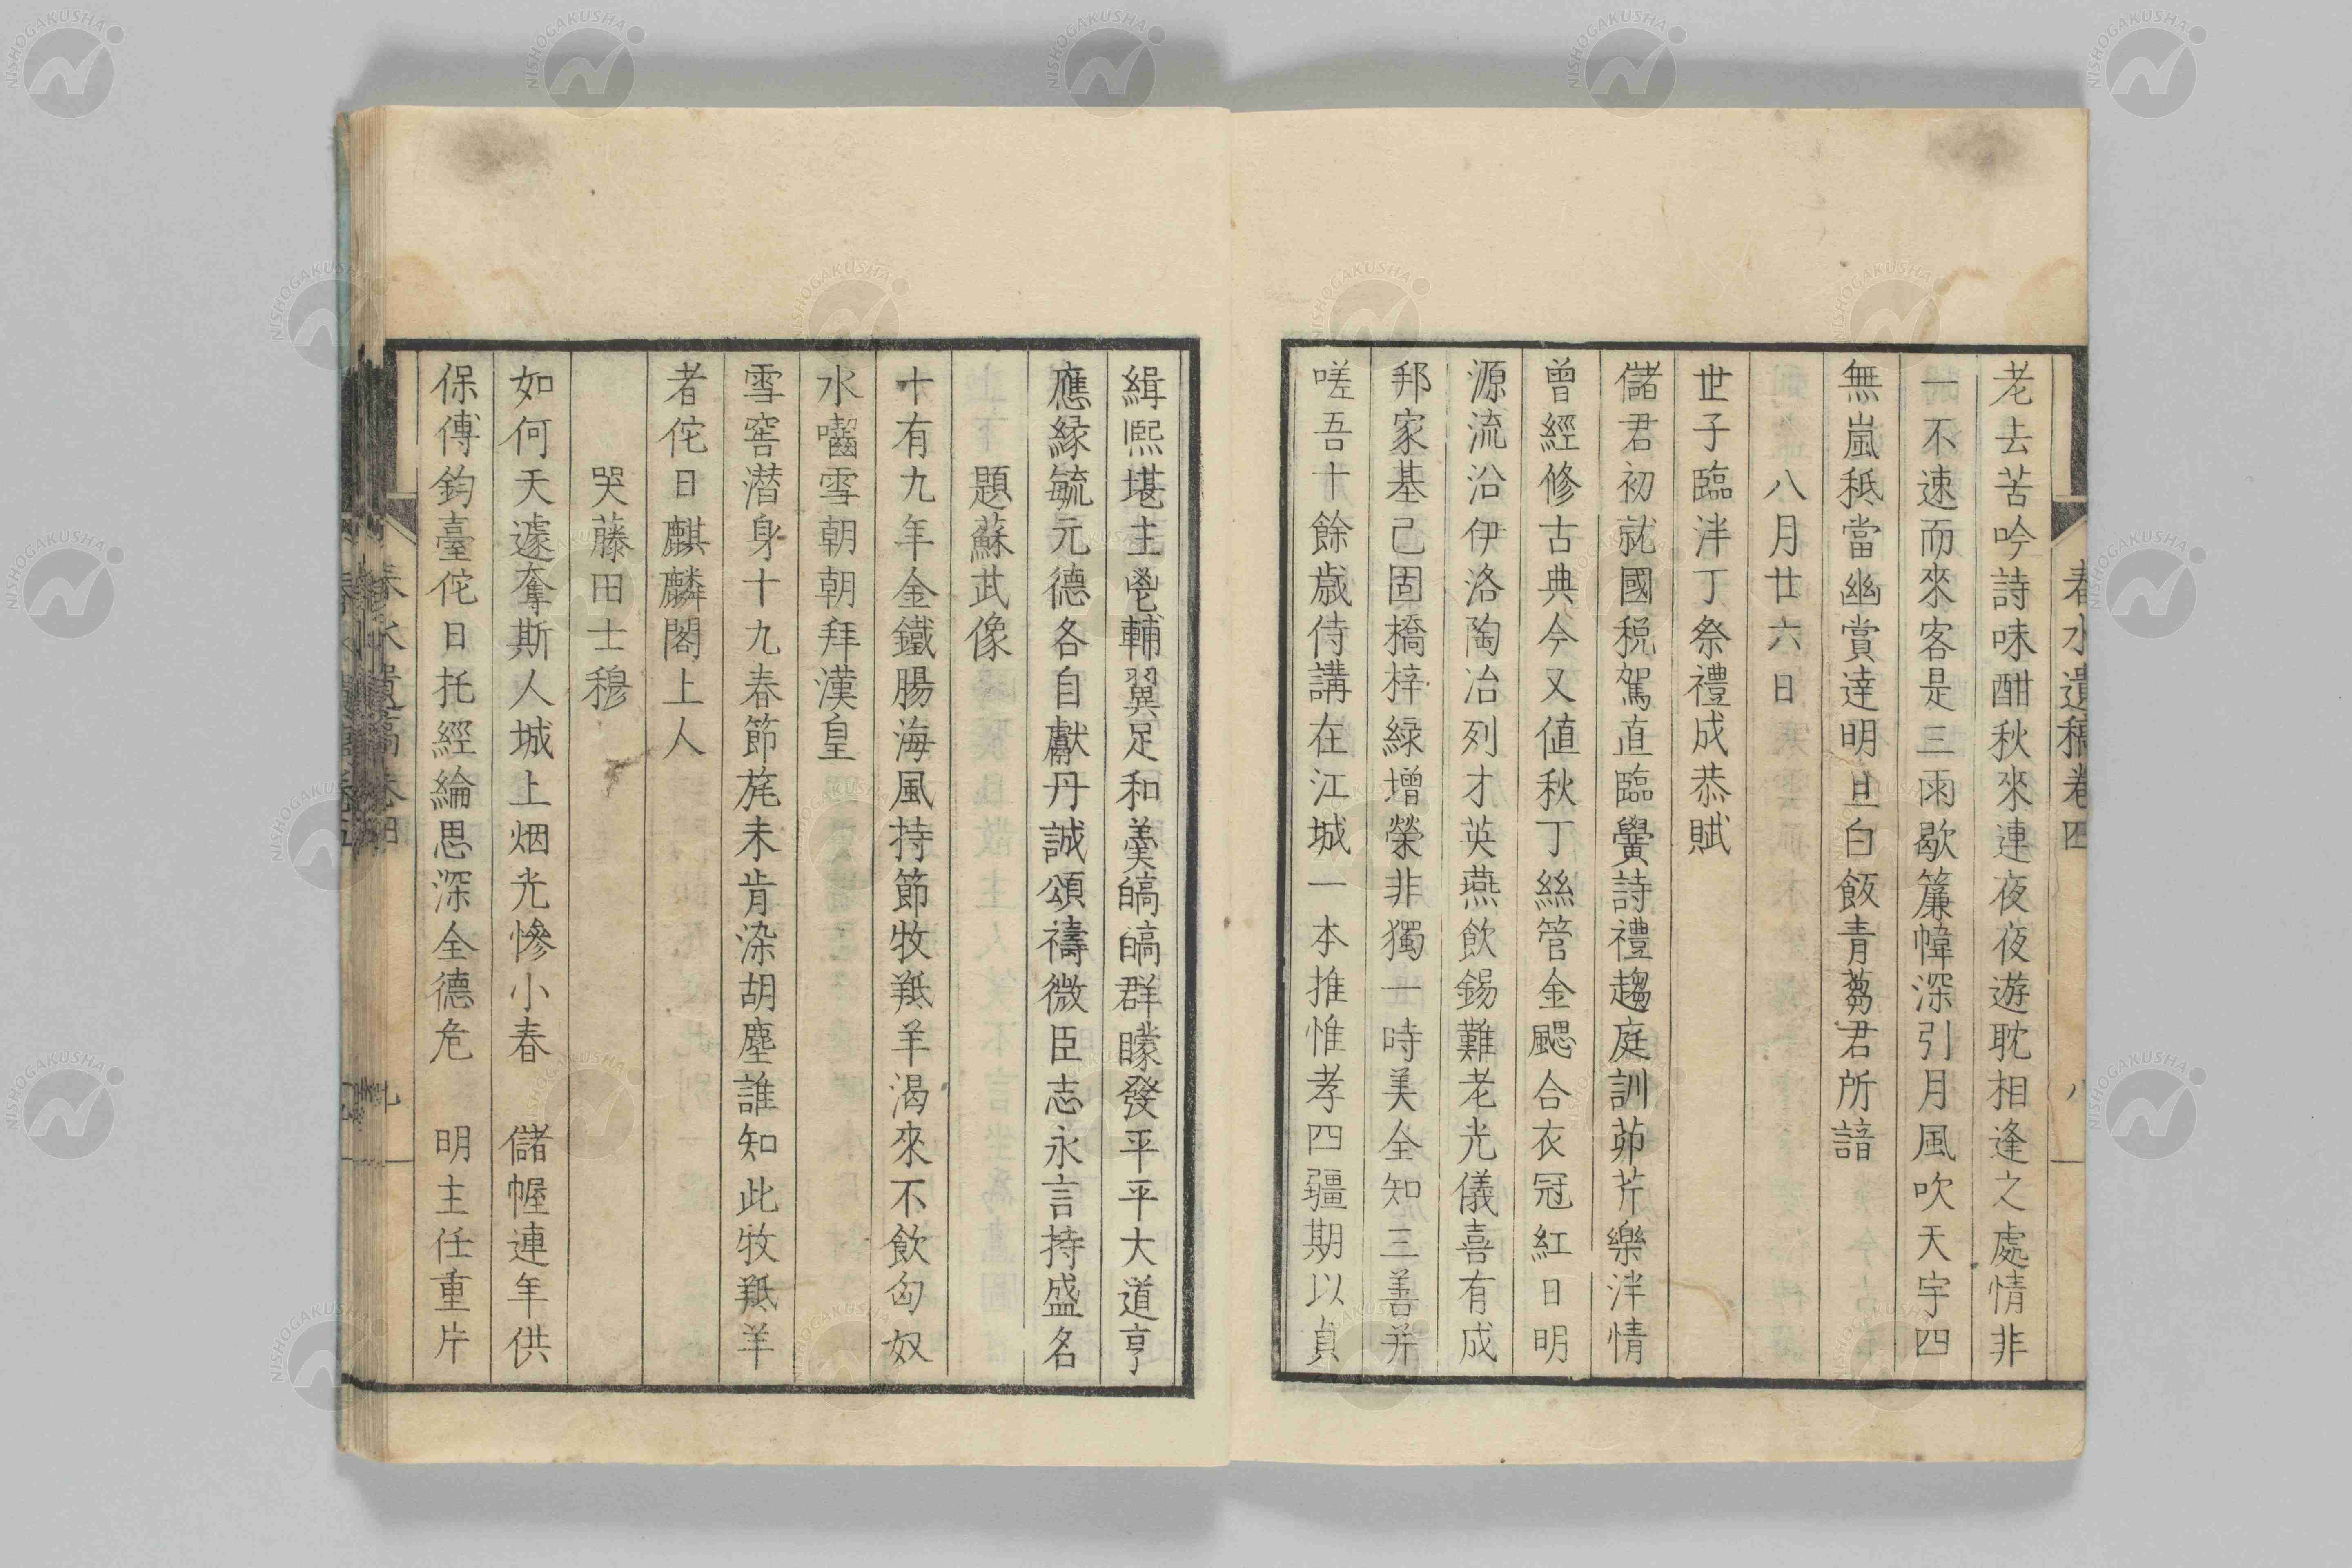 春水遺稿卷四
八
老去苦吟詩味酣秋來連夜夜遊耽相逢之處情非
一不速而來客是三雨歇簾幃深引月風吹天宇四
無嵐秖當幽賞達明旦白飯青蒭君所諳
八月廿六日
世子臨泮丁祭禮成恭賦
儲君初就國稅駕直臨黌詩禮趨庭訓茆芹樂泮情
曾經修古典今又値秋丁絲管金颸合衣冠紅日明
源流沿伊洛陶冶列才英燕飲錫難老光儀喜有成
邦家基已固橋梓綠增榮非獨一時美全知三善并
嗟吾十餘歲侍講在江城一本推惟孝四疆期以貞
緝熙堪主鬯輔翼足和羹皜皜群矇發平平大道亨
應緣毓元德各自獻丹誠頌禱微臣志永言持盛名
題蘇武像
十有九年金鐵腸海風持節牧羝羊渴來不飲匈奴
水囓雪朝朝拜漢皇
雪窖潛身十九春節旄未肯染胡塵誰知此牧羝羊
者佗日麒麟閣上人
哭藤田士穆
如何天遽奪斯人城上烟光慘小春　儲幄連年供
保傅鈞臺佗日托經綸思深全德危　明主任重片
春水遺稿卷四
九